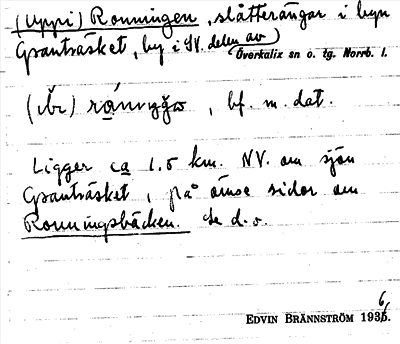 (Uppi) Ronningen, slåtterängar i byn
Granträsket, by i SV. delen av
Överkalix sn o. tg. Norrb. l.
, bf. m. dat.
Ligger ca 1.5 km. NV. om sjön
Granträsket, på ömse sidor om
Ronningsbäcken. Se d. o.
EDVIN BRÄNNSTRÖM 1936.